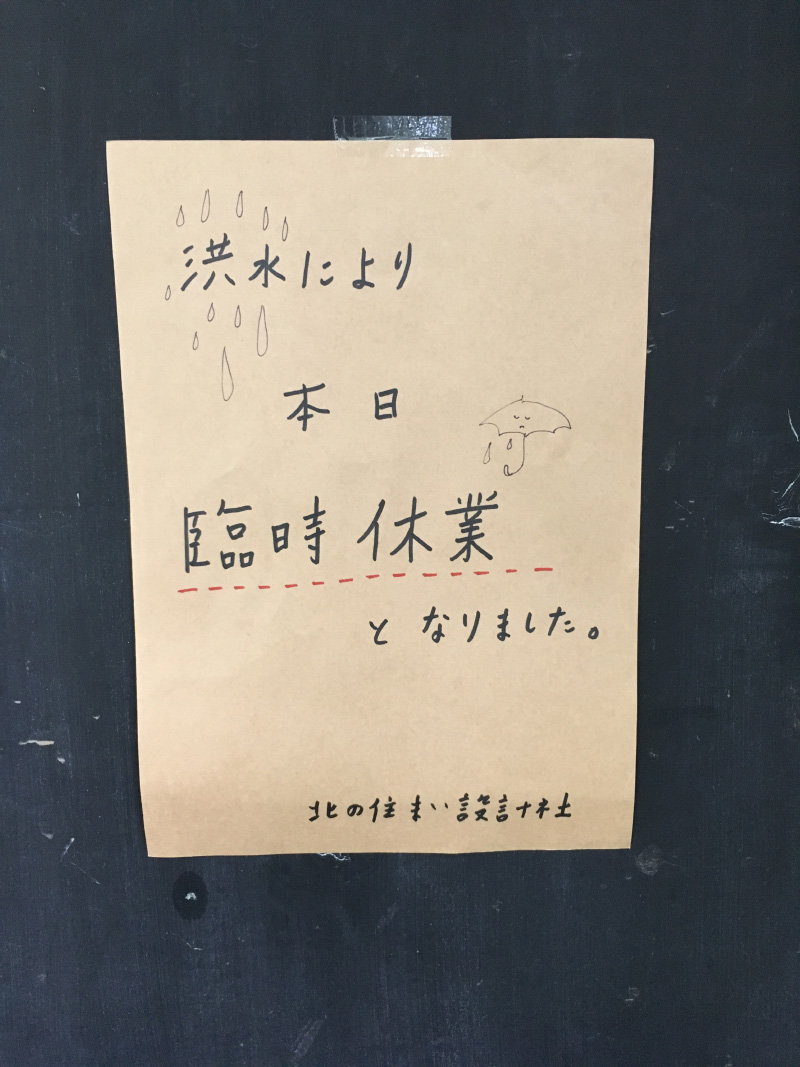 洪水により
本日
臨時休業
となりました。
北の住まい設計社